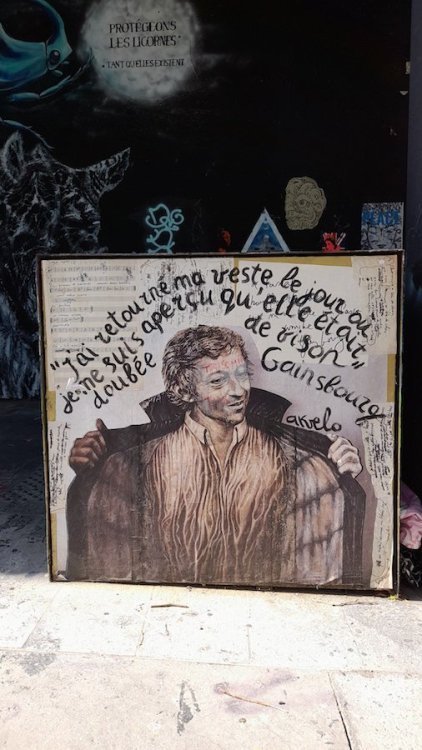 PROTÉGEONS
LES LICORNES
TANT QU'ELLES EXISTENT
"j'ai retourné ma veste le jour où
je me suis aperçu qu'elle était
doublée
de vison"
Gainsbourg